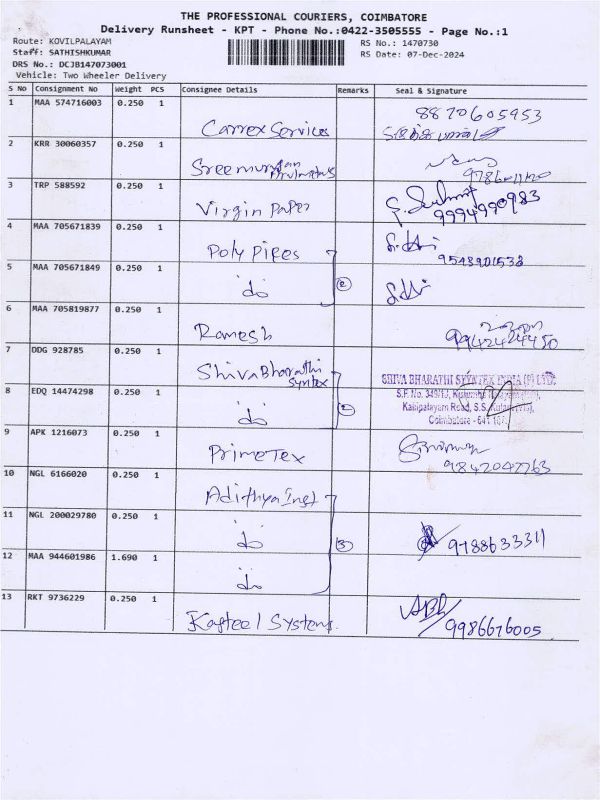 THE PROFESSIONAL COURIERS, COIMBATORE
Delivery Runsheet - KPT - Phone No.:0422-3505555 - Page No.:1
Route: KOVILPALAYAM
RS No.: 1470730
Staff: SATHISHKUMAR
RS Date: 07-Dec-2024
DRS No.: DCJB147073001
Vehicle: Two Wheeler Delivery
S No Consignment No Weight PCS Consignee Details Remarks Seal & Signature
1 MAA 574716003 0.250 1 Carrex Services 8870605953
2 KRR 30060357 0.250 1 Sree
3 TRP 588592 0.250 1 Virgin Paper 9994990983
4 MAA 705671839 0.250 1 Poly Pipes 9543901532
5 MAA 705671849 0.250 1 do 2
6 MAA 705819877 0.250 1 Ramesh
7 DDG 928785 0.250 1 Shiva Bharathi Syntex
SHIVA BHARATHI SYNTEX INDIA (P) LTD.
8 EDQ 14474298 0.250 1 do
Coimbatore - 641
9 APK 1216073 0.250 1 Prime Tex 9842047763
10 NGL 6166020 0.250 1 Adithya Inst
11 NGL 200029780 0.250 1 do 3 9788633311
12 MAA 944601986 1.690 1 do
13 RKT 9736229 0.250 1 Kasteel Systems 9986676005